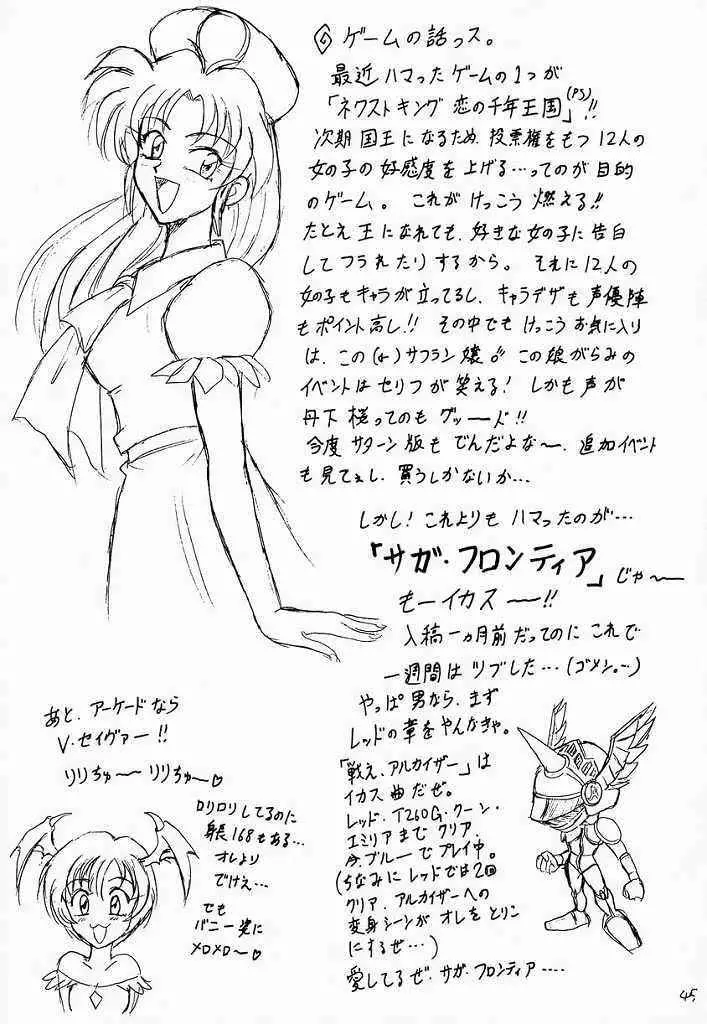 ◎ゲームの話っス。
最近ハマったゲームの1つが
「ネクストキング 恋の千年王国」(PS)!!
次期国王になるため、投票権をもつ12人の
女の子の好感度を上げる…ってのが目的
のゲーム。これがけっこう燃える!!
たとえ王になれても、好きな女の子に告白
してフラれたりするから。それに12人の
女の子もキャラが立ってるし、キャラデザも声優陣
もポイント高し!! その中でもけっこうお気に入り
は、この(←)サフラン嬢。この娘がらみの
イベントはセリフが笑える! しかも声が
丹下桜ってのもグッード!!
今度サターン版もでんだよな〜、追加イベント
も見てぇし、買うしかないか…
しかし! これよりもハマったのが…
「サガ・フロンティア」じゃ〜
もーイカス〜!!
入稿一ヵ月前だってのにこれで
一週間はツブした…(ゴメン。…)
やっぱ男なら、まず
レッドの章をやんなきゃ。
「戦え、アルカイザー」は
イカス曲だぜ。
レッド、T260G、クーン・
エミリアまでクリア、
今、ブルーでプレイ中。
(ちなみにレッドでは2回
クリア、アルカイザーへの
変身シーンがオレをとりこ
にするぜ…)
愛してるぜ、サガ・フロンティア……
あと、アーケードなら
V.セイヴァー!!
リリちゅ〜 リリちゅ〜♡
ロリロリしてるのに
身長168もある…
オレより
でけえ…
でも
バニー姿に
メロメロ〜♡
45.